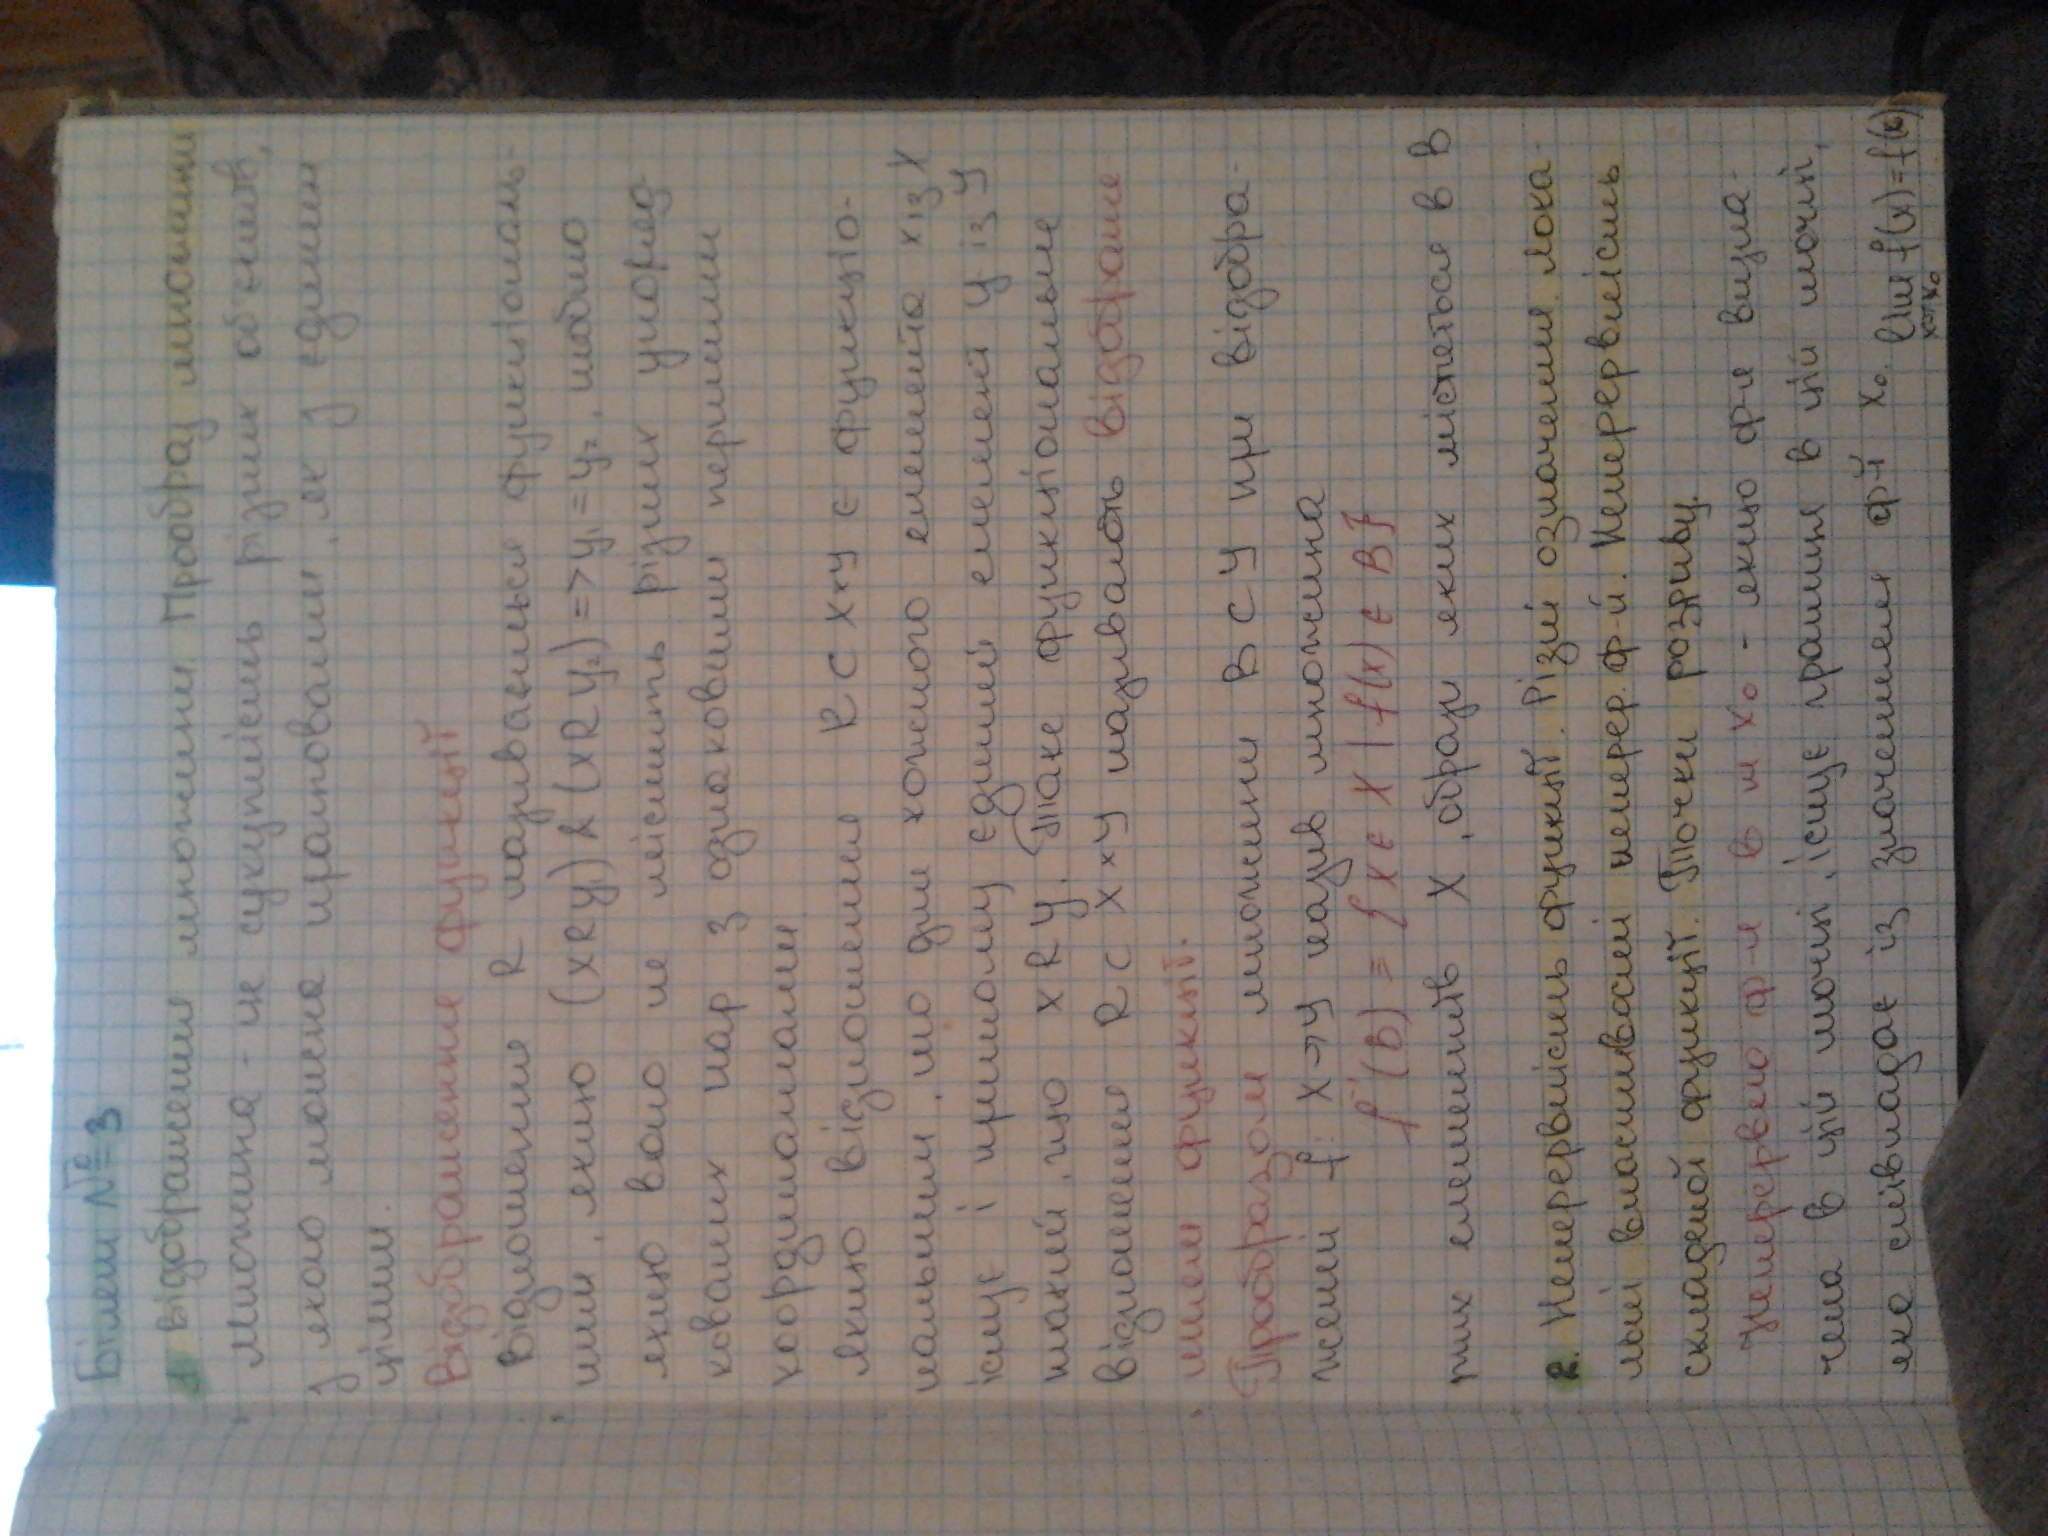 Білет №3
1. Відображення множини. Прообраз множини
Множина - це сукупність різних об'єктів,
з якою можна працювати, як з єдиним
цілим.
Відображення функції
Відношення R називається функціональ-
ним, якщо (xRy₁) & (xRy₂) => y₁ = y₂, тобто
якщо воно не містить різних упоряд-
кованих пар з однаковими першими
координатами.
Якщо відношення R ⊂ X×Y є функціо-
нальним, то для кожного елемента x із X
існує і притому єдиний елемент y із Y
такий, що xRy. Таке функціональне
відношення R ⊂ X×Y називають відображе
нням функції.
Прообразом множини B ⊂ Y при відобра-
женні f: X→Y назив множина
f⁻¹(B) = {x ∈ X | f(x) ∈ B}
тих елементів X, образи яких містяться в B
2. Неперервність функції. Різні означення. лока-
льні властивості неперер. ф-й. Неперервність
складеної функції. Точки розриву.
Неперервно ф-я в т x₀ - якщо ф-я визна-
чена в цій точці, існує границя в цій точці,
яка співпадає із значенням ф-ї x₀. lim f(x) = f(x₀)
x→x₀